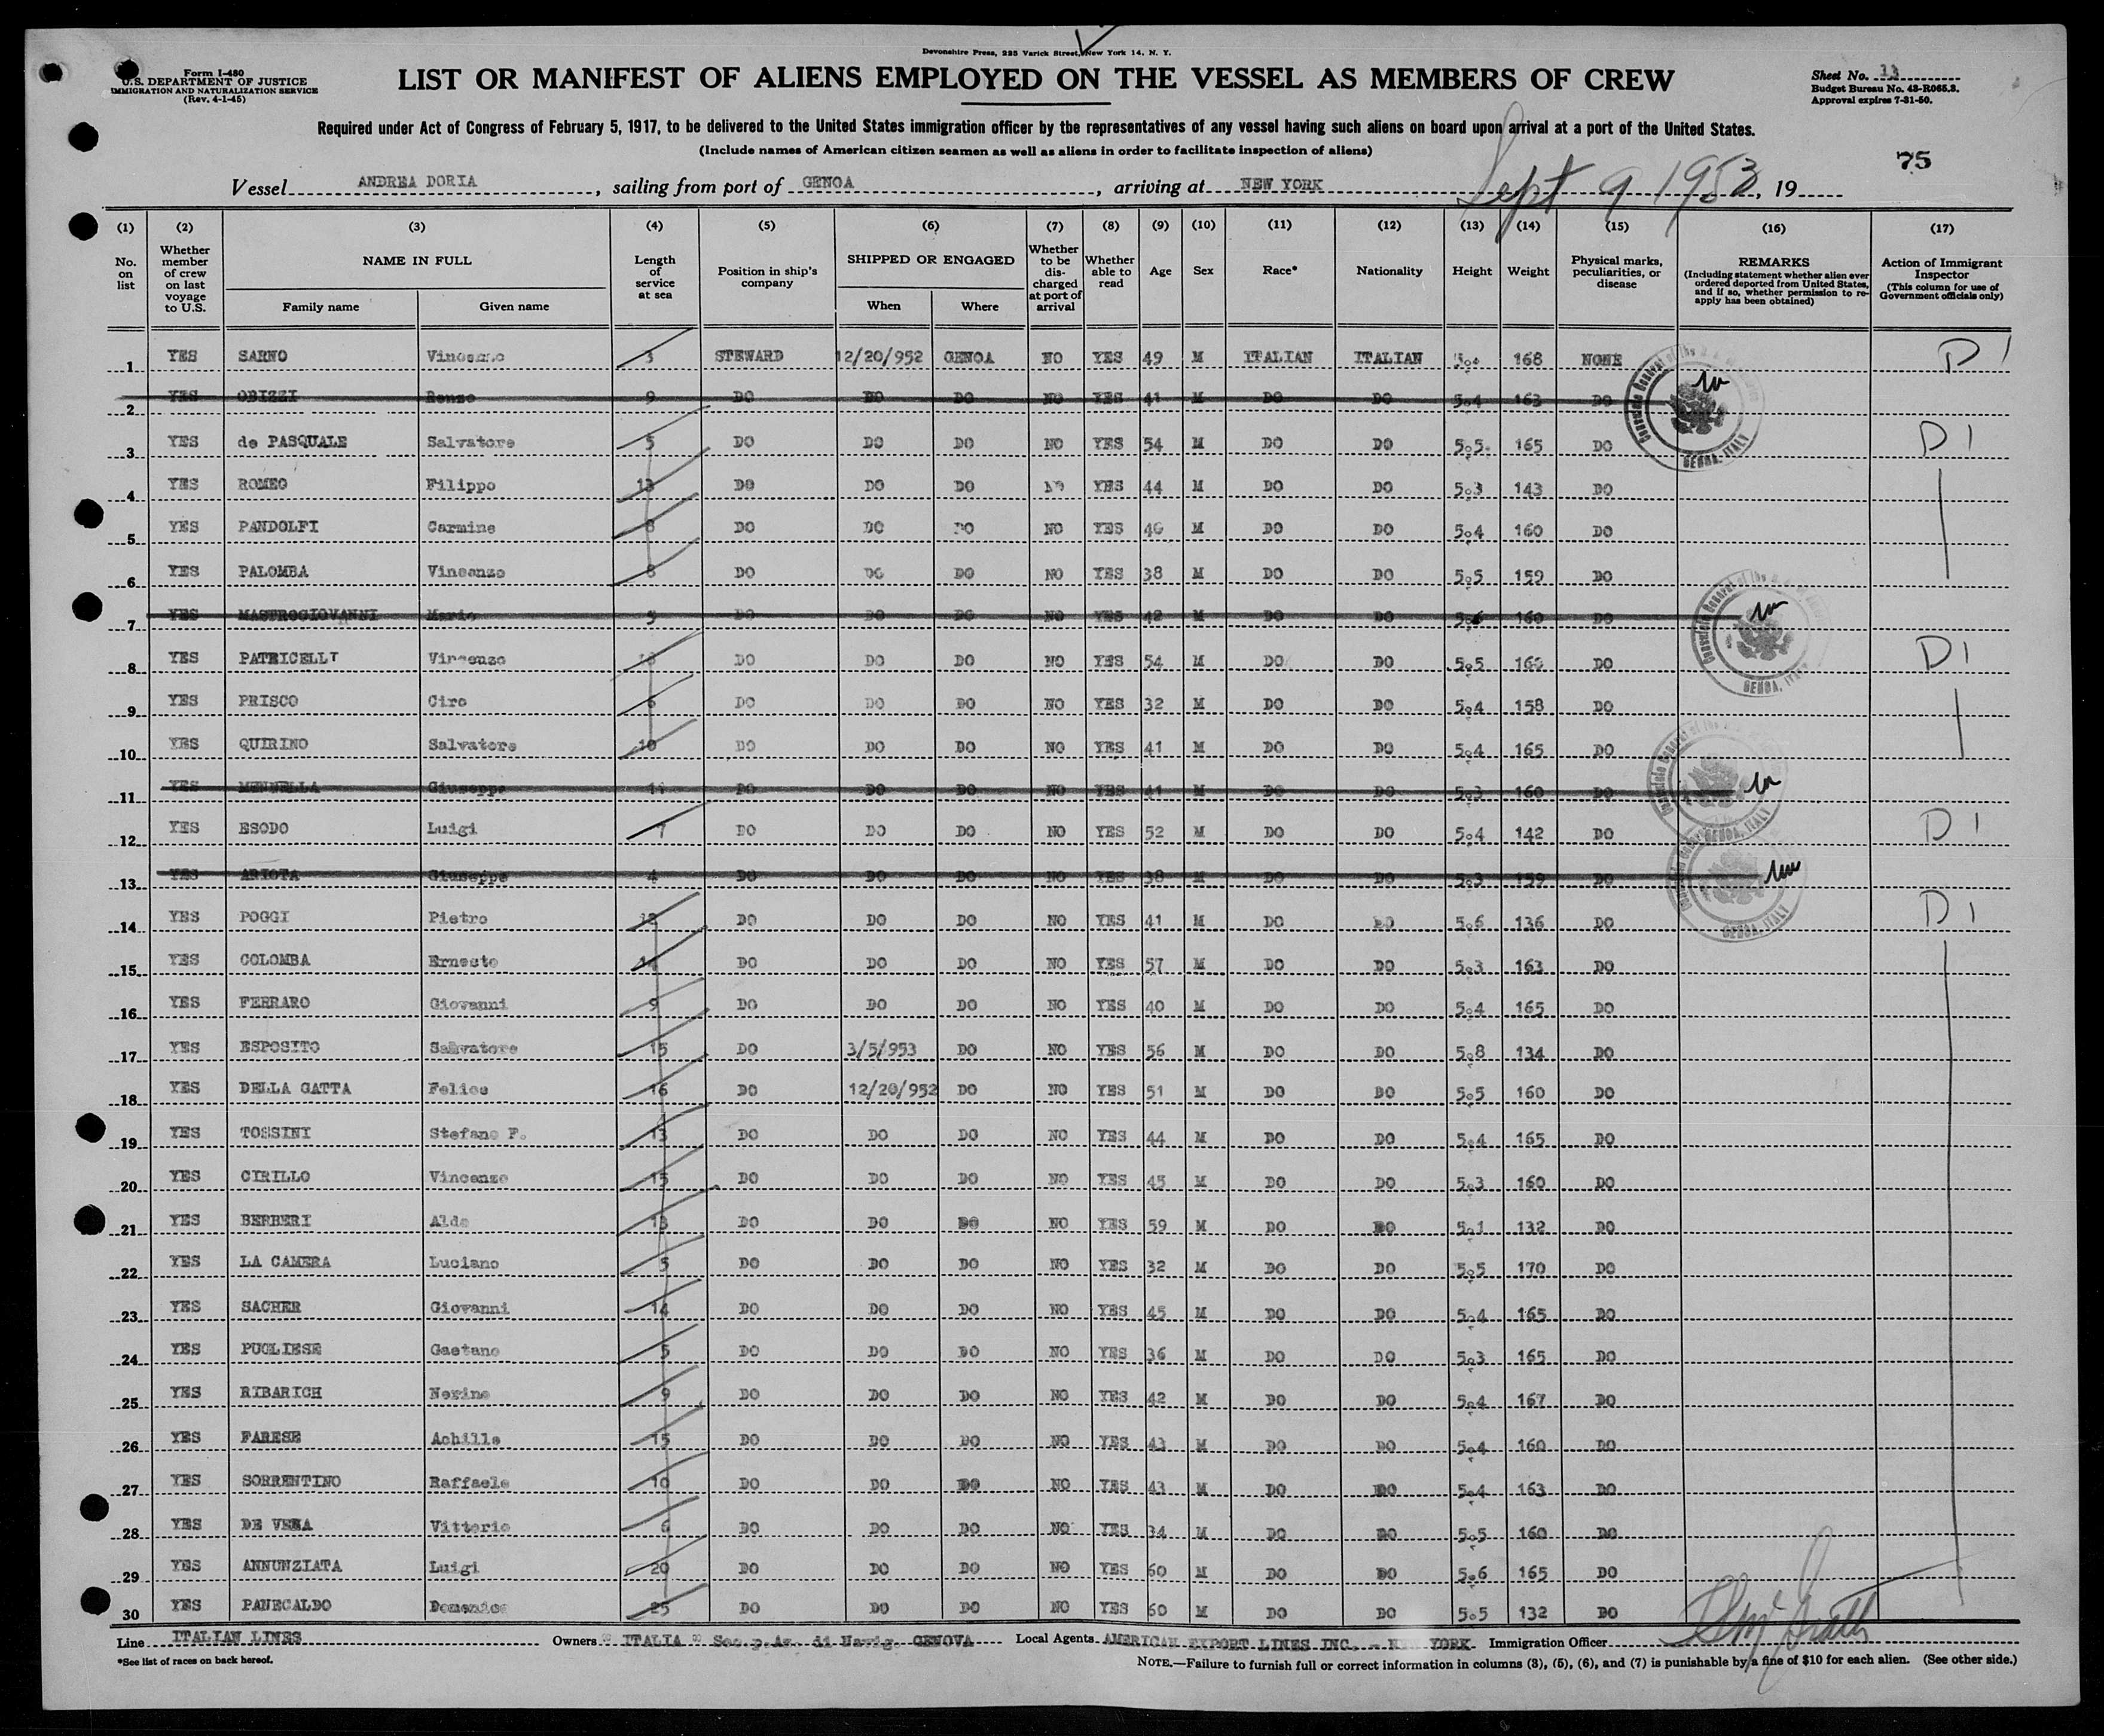 Devonshire Press, 225 Varick Street, New York 14, N. Y.
Form I-480
U.S. DEPARTMENT OF JUSTICE
IMMIGRATION AND NATURALIZATION SERVICE
(Rev. 4-1-45)
LIST OR MANIFEST OF ALIENS EMPLOYED ON THE VESSEL AS MEMBERS OF CREW
Sheet No. 13
Budget Bureau No. 43-R065.3.
Approval expires 7-31-50.
Required under Act of Congress of February 5, 1917, to be delivered to the United States immigration officer by the representatives of any vessel having such aliens on board upon arrival at a port of the United States.
(Include names of American citizen seamen as well as aliens in order to facilitate inspection of aliens)
75
Vessel ANDREA DORIA, sailing from port of GENOA, arriving at NEW YORK Sept 9 1953, 19
(1) (2) (3) (4) (5) (6) (7) (8) (9) (10) (11) (12) (13) (14) (15) (16) (17)
No. on list
Whether member of crew on last voyage to U.S.
NAME IN FULL
Family name Given name
Length of service at sea
Position in ship's company
SHIPPED OR ENGAGED
When Where
Whether to be discharged at port of arrival
Whether able to read
Age
Sex
Race*
Nationality
Height
Weight
Physical marks, peculiarities, or disease
REMARKS
(Including statement whether alien ever ordered deported from United States, and if so, whether permission to reapply has been obtained)
Action of Immigrant Inspector
(This column for use of Government officials only)
1 YES SARNO Vincenzo 3 STEWARD 12/20/952 GENOA NO YES 49 M ITALIAN ITALIAN 168 NONE D 1
2 YES OBIZZI Renzo 9 DO DO DO NO YES 41 M DO DO 5.4 163 DO
3 YES de PASQUALE Salvatore 5 DO DO DO NO YES 54 M DO DO 5.5 165 DO D 1
4 YES ROMEO Filippo 13 DO DO DO NO YES 44 M DO DO 5.3 143 DO
5 YES PANDOLFI Carmine 8 DO DO DO NO YES 46 M DO DO 5.4 160 DO
6 YES PALOMBA Vincenzo 8 DO DO DO NO YES 38 M DO DO 5.5 159 DO
7 YES MASTROGIOVANNI Mario 5 DO DO DO NO YES 42 M DO DO 5.6 160 DO
8 YES PATRICELLI Vincenzo DO DO DO NO YES 54 M DO DO 5.5 160 DO D 1
9 YES PRISCO Ciro 6 DO DO DO NO YES 32 M DO DO 5.4 158 DO
10 YES QUIRINO Salvatore 10 DO DO DO NO YES 41 M DO DO 5.4 165 DO
11 YES MENNELLA Giuseppe 11 DO DO DO NO YES 41 M DO DO 5.3 160 DO
12 YES ESODO Luigi 7 DO DO DO NO YES 52 M DO DO 5.4 142 DO D 1
13 YES ARIOTA Giuseppe 4 DO DO DO NO YES 38 M DO DO 5.3 159 DO
14 YES POGGI Pietro 12 DO DO DO NO YES 41 M DO DO 5.6 136 DO D 1
15 YES COLOMBA Ernesto 14 DO DO DO NO YES 57 M DO DO 5.3 163 DO
16 YES FERRARO Giovanni 9 DO DO DO NO YES 40 M DO DO 5.4 165 DO
17 YES ESPOSITO Salvatore 15 DO 3/5/953 DO NO YES 56 M DO DO 5.8 134 DO
18 YES DELLA GATTA Felice 16 DO 12/20/952 DO NO YES 51 M DO DO 5.5 160 DO
19 YES TOSSINI Stefano F. 13 DO DO DO NO YES 44 M DO DO 5.4 165 DO
20 YES CIRILLO Vincenzo 15 DO DO DO NO YES 45 M DO DO 5.3 160 DO
21 YES BERBERI Aldo 13 DO DO DO NO YES 59 M DO DO 5.1 132 DO
22 YES LA CAMERA Luciano 5 DO DO DO NO YES 32 M DO DO 5.5 170 DO
23 YES SACHER Giovanni 14 DO DO DO NO YES 45 M DO DO 5.4 165 DO
24 YES PUGLIESE Gaetano 5 DO DO DO NO YES 36 M DO DO 5.3 165 DO
25 YES RIBARICH Nerino 9 DO DO DO NO YES 42 M DO DO 5.4 167 DO
26 YES FARESE Achille 15 DO DO DO NO YES 43 M DO DO 5.4 160 DO
27 YES SORRENTINO Raffaele 10 DO DO DO NO YES 43 M DO DO 5.4 163 DO
28 YES DE VERA Vittorio 6 DO DO DO NO YES 34 M DO DO 5.5 160 DO
29 YES ANNUNZIATA Luigi 20 DO DO DO NO YES 60 M DO DO 5.6 165 DO
30 YES PANECALDO Domenico 25 DO DO DO NO YES 60 M DO DO 5.5 132 DO
Line ITALIAN LINES Owners "ITALIA" Soc.p.Az. di Navig. GENOVA Local Agents AMERICAN EXPORT LINES INC. - NEW YORK Immigration Officer
*See list of races on back hereof.
NOTE.—Failure to furnish full or correct information in columns (3), (5), (6), and (7) is punishable by a fine of $10 for each alien. (See other side.)